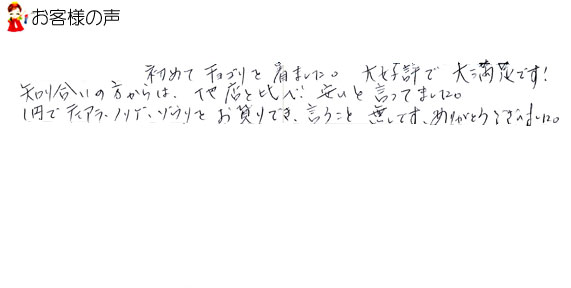 お客様の声
初めてチョゴリを着ました。大好評で大満足です!
知り合いの方からは、他店と比べ安いと言ってました。
1円でティアラ、ノリゲ、ゾウリをお貸りでき、言うこと無しです、ありがとうございました。